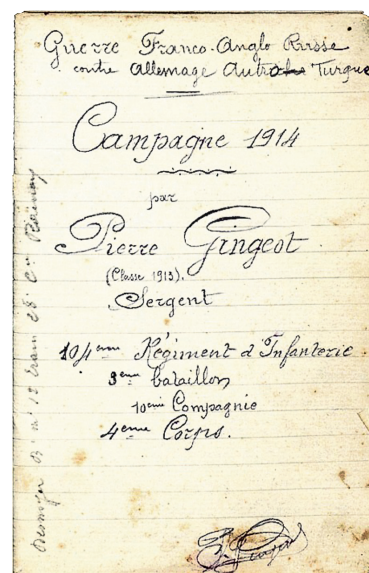 Guerre Franco-Anglo Russe
contre Allemage Autro Turque
Campagne 1914
par
Pierre Gingeot
(Classe 1913).
Sergent
104eme Régiment d'Infanterie
3eme bataillon
10eme Compagnie
4eme Corps.